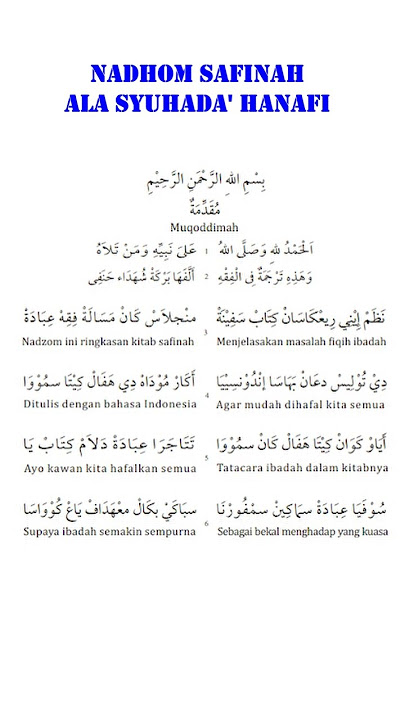 NADHOM SAFINAH
ALA SYUHADA' HANAFI
بِسْمِ اللهِ الرَّحْمَنِ الرَّحِيْمِ
مُقَدِّمَةٌ
Muqoddimah
اَلْحَمْدُ لِلهِ وَصَلَّى اللهُ 1 عَلَى نَبِيِّهِ وَمَنْ تَلَاهُ
وَهَذِهِ تَرْجَمَةٌ فِى الْفِقْهِ 2 أَلَّفَهَا بَرْكَةْ شُهَدَاء حَنَفِى
نَظَمْ إِيْنِي رِيعْكَاسَانْ كِتَابْ سَفِيْنَةْ 3 مَنْجلَاسْ كَانْ مَسَالَةْ فِقِهْ عِبَادَةْ
Nadzom ini ringkasan kitab safinah Menjelasakan masalah fiqih ibadah
دِيْ تُوْلِيسْ دعَانْ بَهَاسَا إِنْدُوْنسِيْيَا 4 أَكَارْ مُوْدَاهْ دِي هَفَالْ كِيْتَا سمُوْوَا
Ditulis dengan bahasa Indonesia Agar mudah dihafal kita semua
أَيَاوْ كَوَانْ كِيْتَا هَفَالْ كَانْ سمُوْوَا 5 تَتَاجَرَا عِبَادَةْ دَلَامْ كِتَابْ يَا
Ayo kawan kita hafalkan semua Tatacara ibadah dalam kitabnya
سُوْفَيَا عِبَادَةْ سمَاكِيْنْ سمْفُوْرْنَا 6 سبَاكَيْ بكَالْ معْهَدَافْ يَاعْ كُوْوَاسَا
Supaya ibadah semakin sempurna Sebagai bekal menghadap yang kuasa